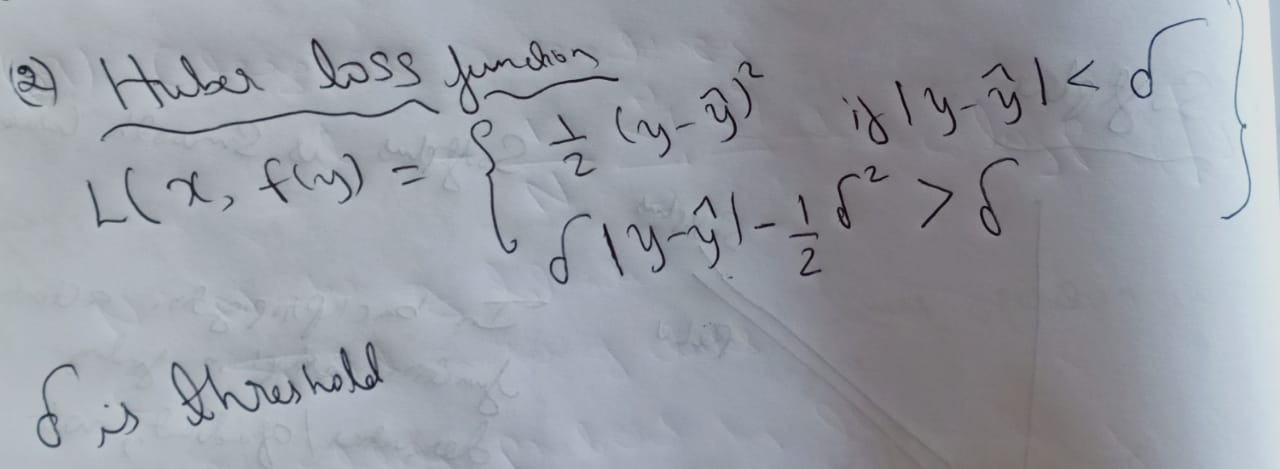 (2) Huber loss function
L(x, f(y) = { 1/2 (y-ŷ)² if |y-ŷ| < δ }
δ|y-ŷ| - 1/2 δ² > δ
δ is threshold